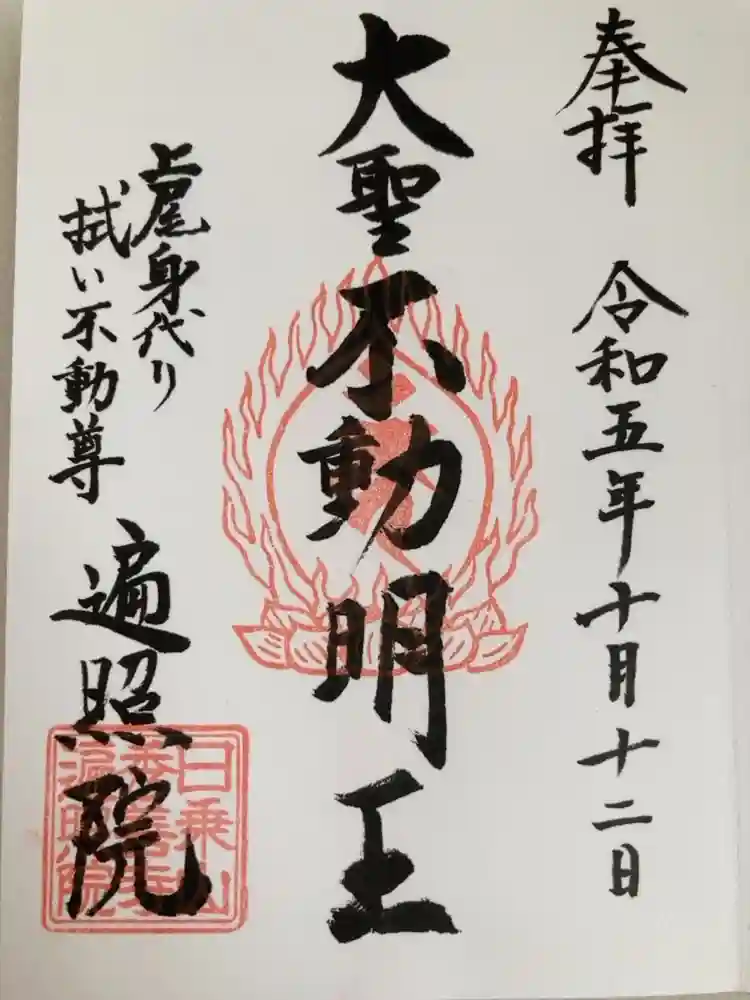 奉拝 令和五年十月十二日
大聖不動明王
上尾身代り
拭い不動尊
遍照院
日乗山
秀善寺
遍照院